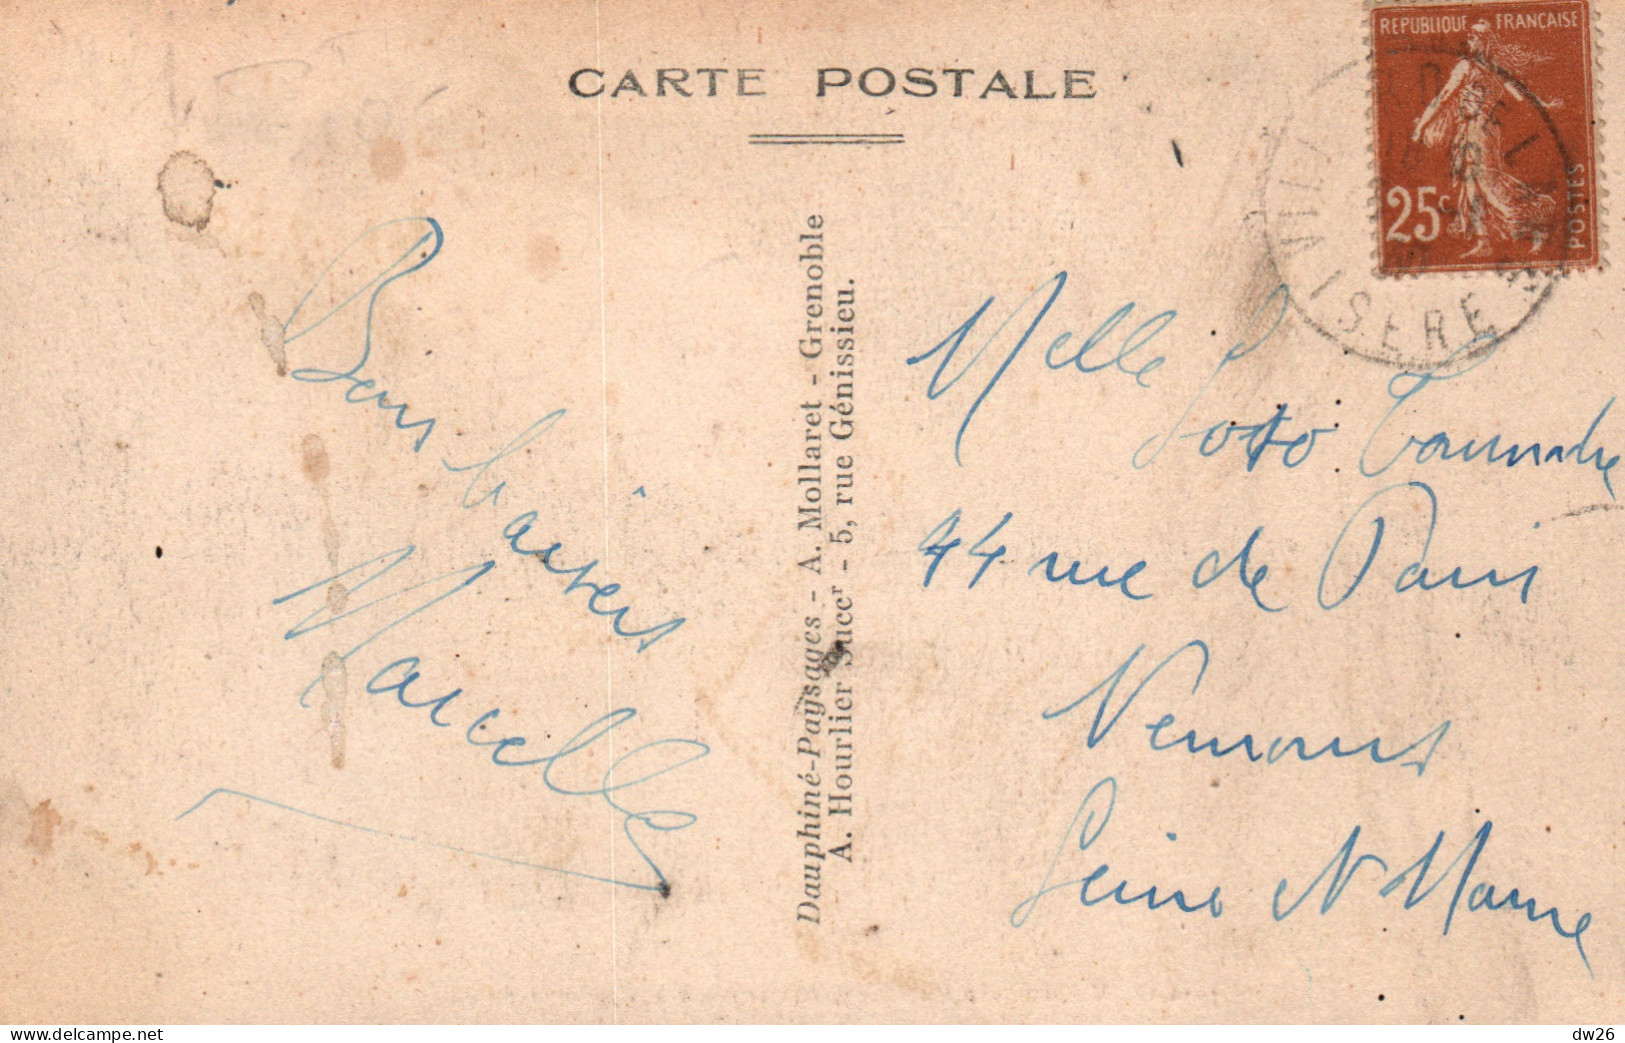 CARTE POSTALE
REPUBLIQUE FRANÇAISE
25c
POSTES
VILLARD DE LANS
ISERE
Bons baisers
Marcelle
Dauphiné-Paysages - A. Mollaret - Grenoble
A. Hourlier Succr - 5, rue Génissieu.
Melle
44 rue de Paris
Nemours
Seine et Marne
delcampe.net
dw26